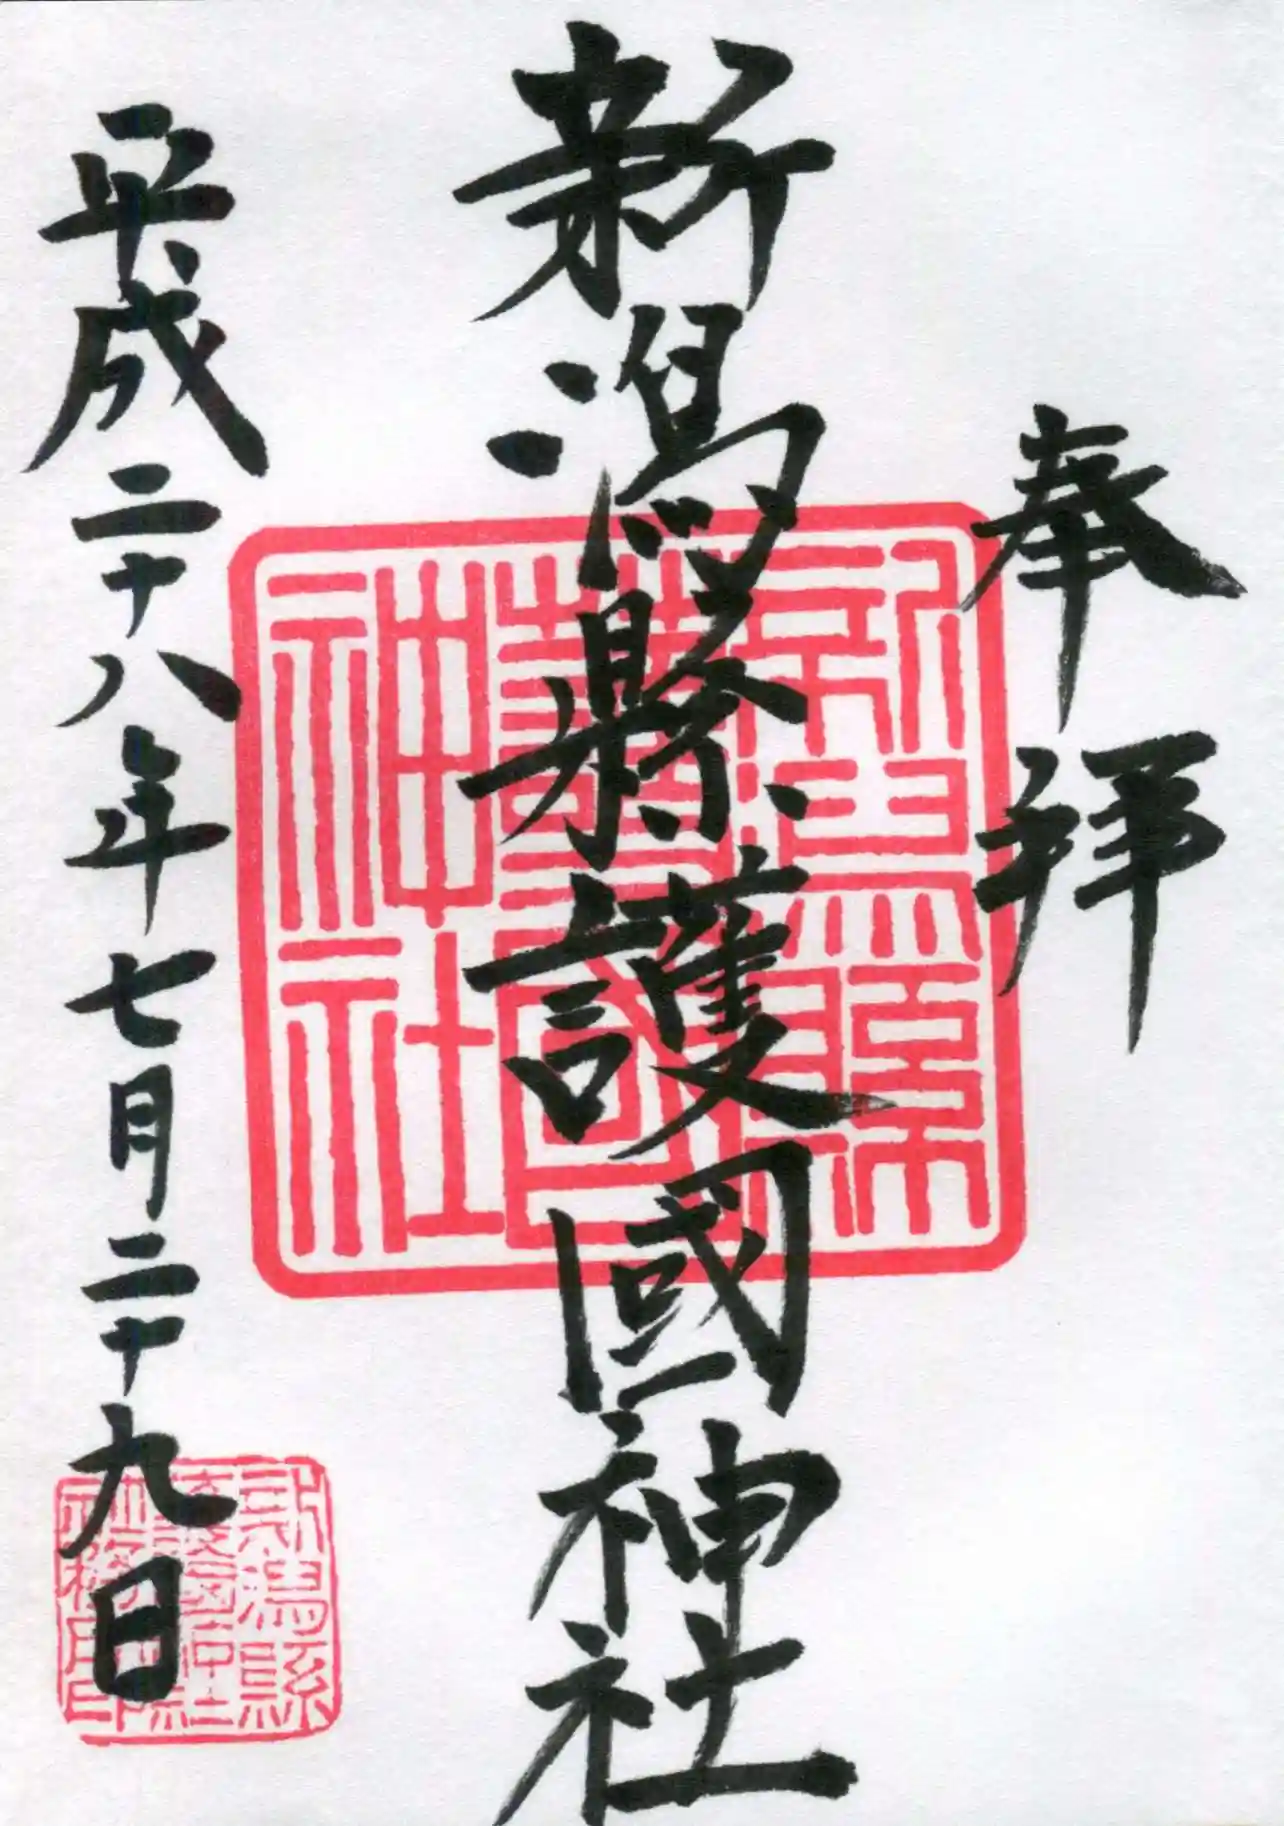 奉拝
新潟縣護國神社
平成二十八年七月二十九日
新潟縣
護國
神社
新潟縣
護國神社
社務所印